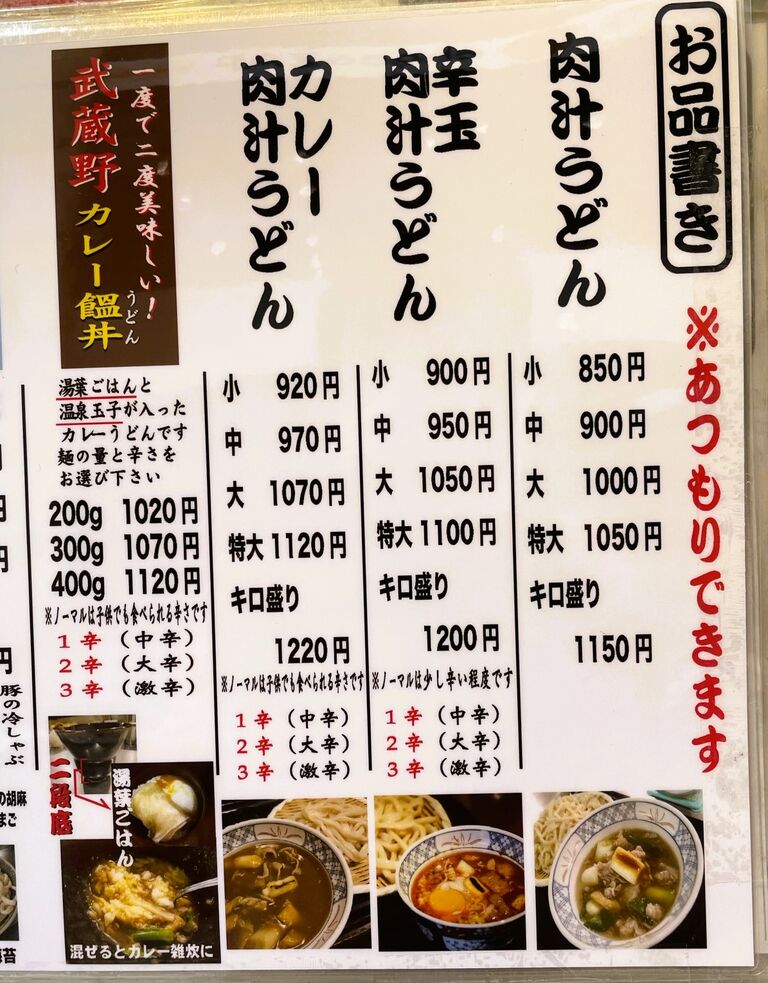 お品書き
※あつもりできます
肉汁うどん
小 850円
中 900円
大 1000円
特大 1050円
キロ盛り
1150円
辛玉
肉汁うどん
小 900円
中 950円
大 1050円
特大 1100円
キロ盛り
1200円
※ノーマルは少し辛い程度です
1辛 (中辛)
2辛 (大辛)
3辛 (激辛)
カレー
肉汁うどん
小 920円
中 970円
大 1070円
特大 1120円
キロ盛り
1220円
※ノーマルは子供でも食べられる辛さです
1辛 (中辛)
2辛 (大辛)
3辛 (激辛)
一度で二度美味しい!
武蔵野カレー饂丼
うどん
湯葉ごはんと
温泉玉子が入った
カレーうどんです
麺の量と辛さを
お選び下さい
200g 1020円
300g 1070円
400g 1120円
※ノーマルは子供でも食べられる辛さです
1辛 (中辛)
2辛 (大辛)
3辛 (激辛)
二段底
湯葉ごはん
混ぜるとカレー雑炊に
円
豚の冷しゃぶ
の胡麻
まご
海苔